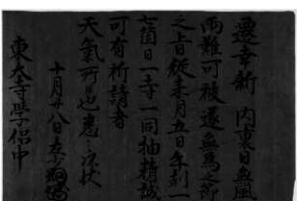 遷幸新 内裏日無風
雨難可被遂無為之節
之旨従来月五日午剋一
七箇日一寺一同抽精誠
可有祈請者
天氣所也悉之以状
十月廿八日左少
東大寺學侶中